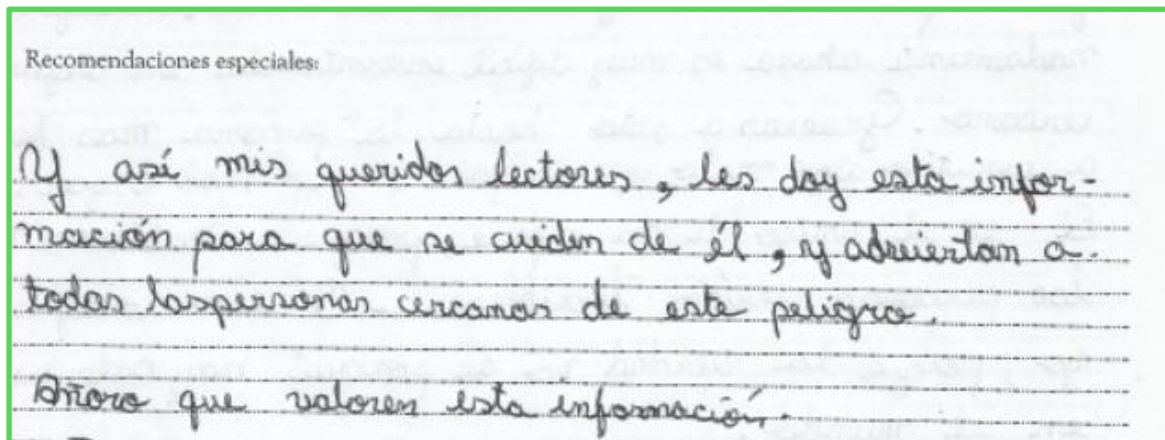 Recomendaciones especiales:
Y así mis queridos lectores, les doy esta infor-
mación para que se cuiden de él, y adviertan a
todas laspersonas cercanas de este peligro.
Añoro que valoren esta información.